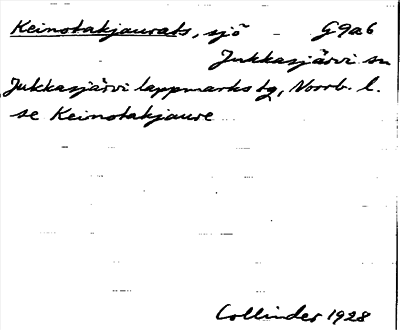 Keinotakjaurats, sjö - G9a6
Jukkasjärvi sn
Jukkasjärvi lappmarks tg, Norrb. l.
se Keinotakjaure
Collinder 1928